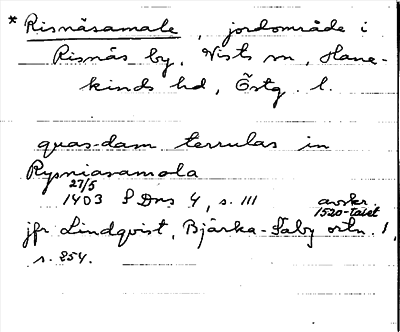 * Risnäsamale, jordområde i
Risnäs by, Vists sn, Hane-
kinds hd, Östg. l.
quas-dam terrulas in
Rysniasamola
27/5
1403 SDns 4, s. 111 avskr.
1520-talet
jfr Lindqvist, Bjärka-Säby ortn. 1,
s. 254.